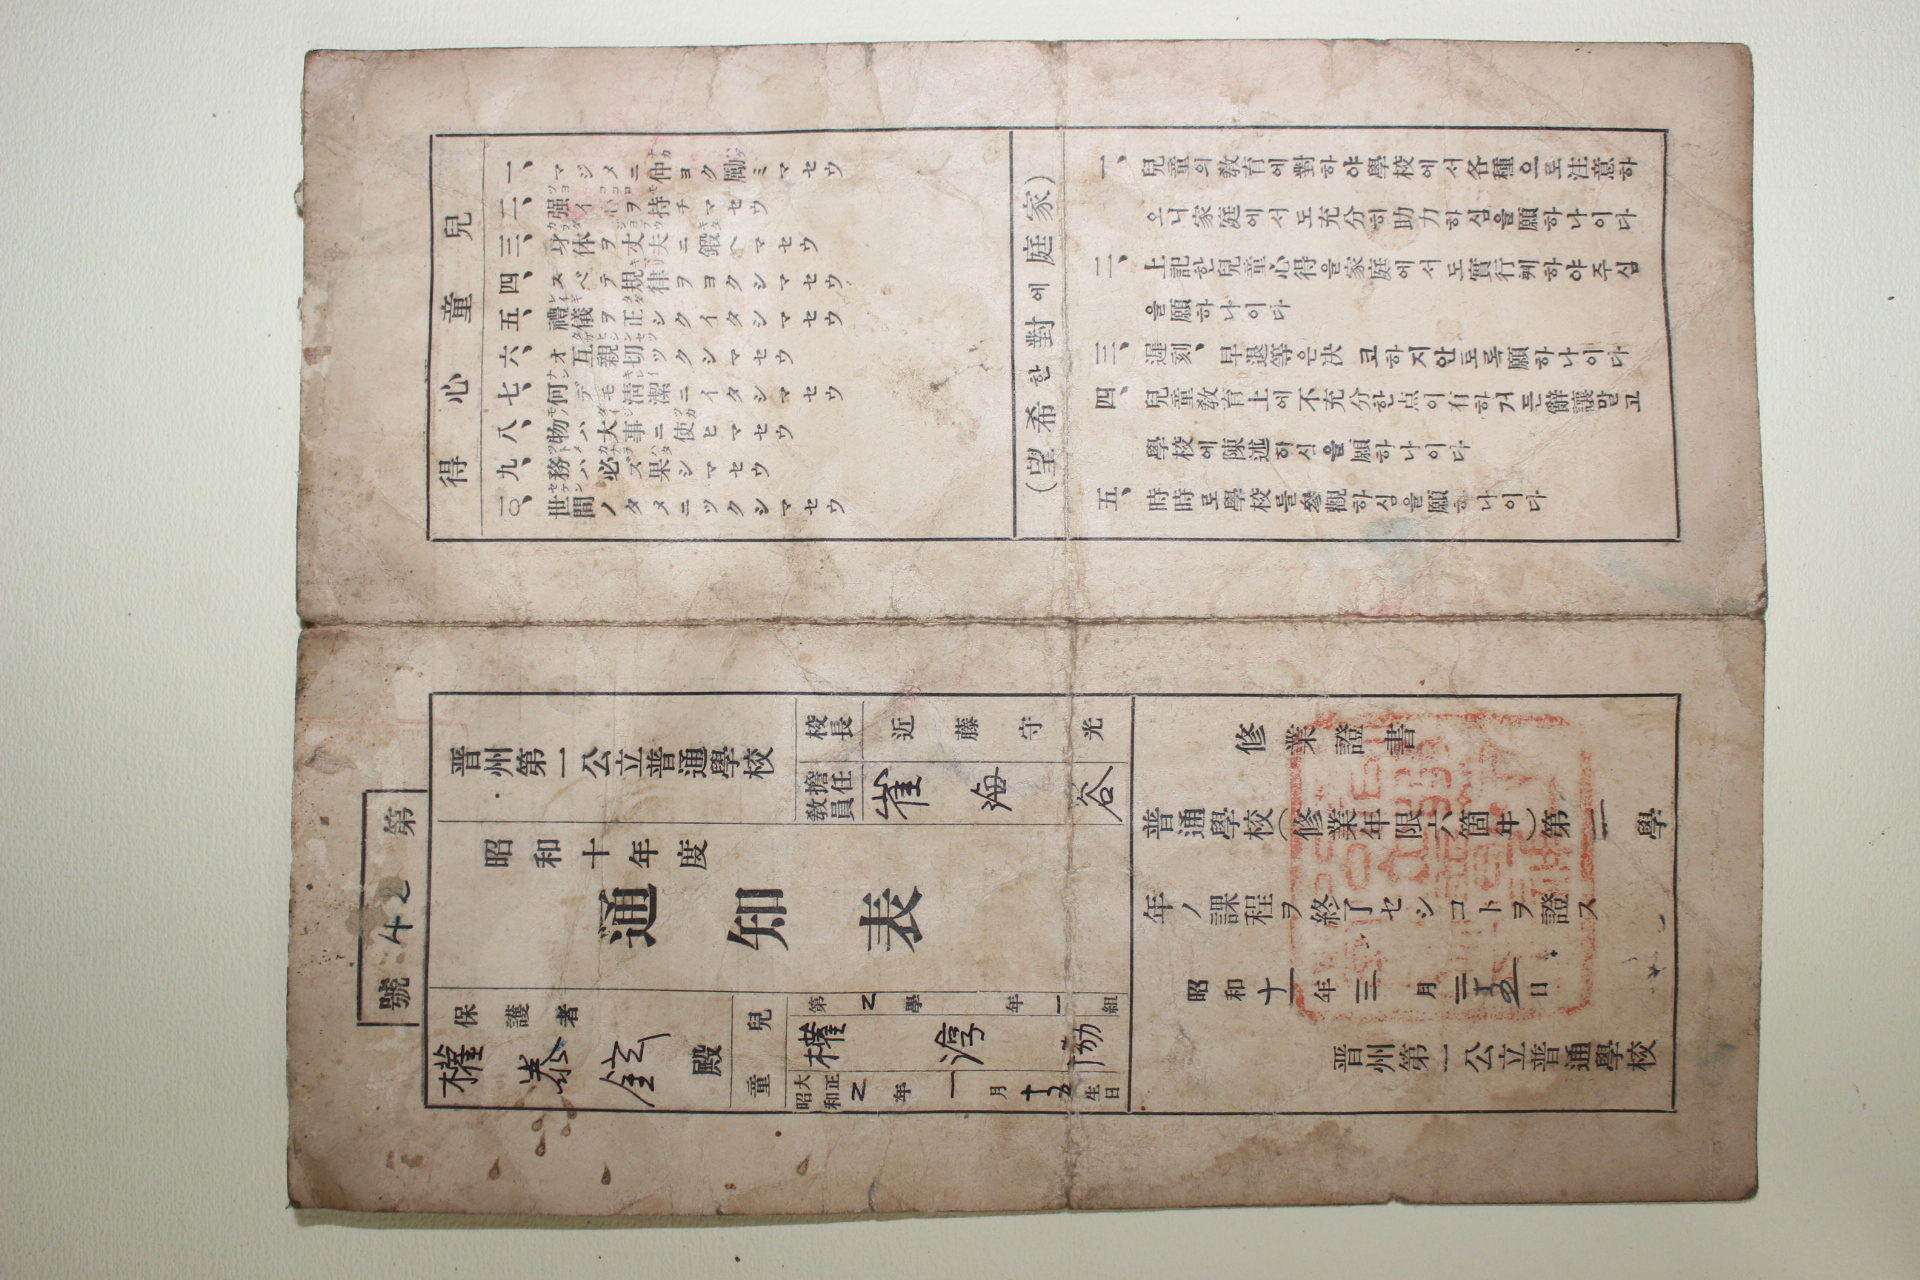 兒童心得
一、マジメニ仲ヨク勵ミマセウ
二、强イ心ヲ持チマセウ
三、身体ヲ丈夫ニ鍛ヘマセウ
四、スベテ規律ヲヨクシマセウ
五、禮儀ヲ正シクイタシマセウ
六、オ互親切ツクシマセウ
七、何デモ淸潔ニイタシマセウ
八、物ハ大事ニ使ヒマセウ
九、務ハ必ズ果シマセウ
一〇、世間ノタメニツクシマセウ
(家庭에對한希望)
一、兒童의敎育에對하야學校에서各種으로注意하
오니家庭에서도充分히助力하심을願하나이다
二、上記한兒童心得을家庭에서도實行케하야주심
을願하나이다
三、遲刻、早退等은决코하지안토록願하나이다
四、兒童敎育上에不充分한点이有하거든辭讓말고
學校에陳述하심을願하나이다
五、時時로學校를參觀하심을願하나이다
第 42 號
晋州第一公立普通學校
校長 近藤守光
擔任敎員 崔海容
昭和十年度
通知表
保護者
權泰鉉 殿
兒童
第 2 學年 一 組
權淳協
大正昭和 2 年 一 月 十五 日生
修業證書
普通學校(修業年限六箇年)第二學
年ノ課程ヲ終了セシコトヲ證ス
昭和十一年三月二十五日
晋州第一公立普通學校